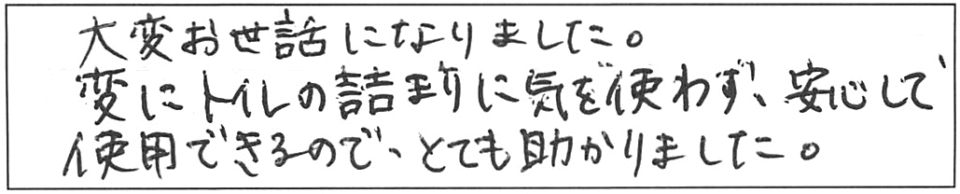 大変お世話になりました。
変にトイレの詰まりに気を使わず、安心して
使用できるので、とても助かりました。